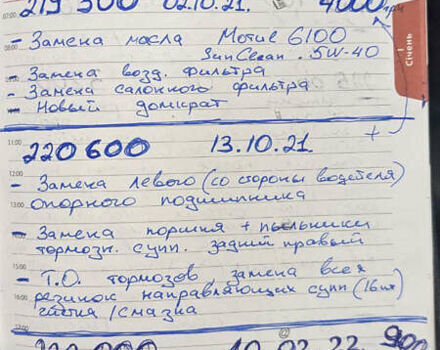 219 300 02.10.21. 4000 грн
- Замена масла Motul 6100
SunClean. 5W-40
- Замена возд. Фильтра
- Замена салонного фильтра
- Новый домкрат
Січень
11:00
220 600 13.10.21.
- Замена левого (со стороны водителя)
13:00
опорного подшипника
- Замена поршня + пыльники
тормозн. супп. задний правый
15:00
- Т.О. тормозов, замена всех
16:00
резинок направляющих супп (16шт)
чистка / смазка
17:00